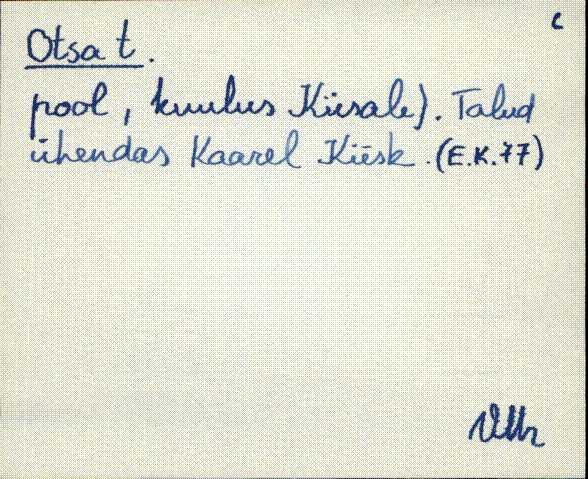 c
Otsa t.
pool, kuulus Kiisale). Talud
ühendas Kaarel Kiisk. (E.K. 77)